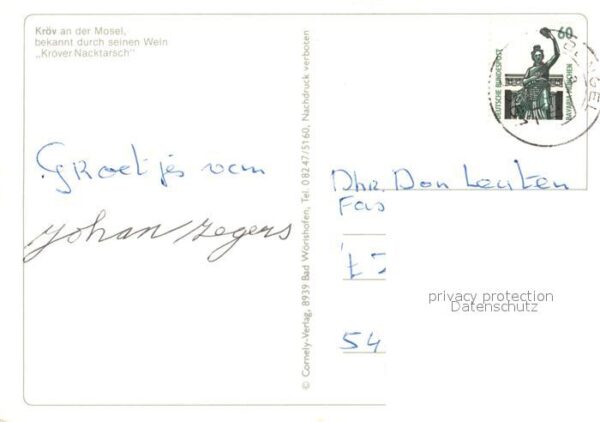 Kröv an der Mosel,
bekannt durch seinen Wein
„Kröver Nacktarsch"
60
DEUTSCHE BUNDESPOST
BAVARIA MÜNCHEN
© Cornely-Verlag, 8939 Bad Wörishofen, Tel. 08247/5160, Nachdruck verboten
Groetjes van
Johan Zegers
Dhr. Don Leuten
Fas
54
privacy protection
Datenschutz